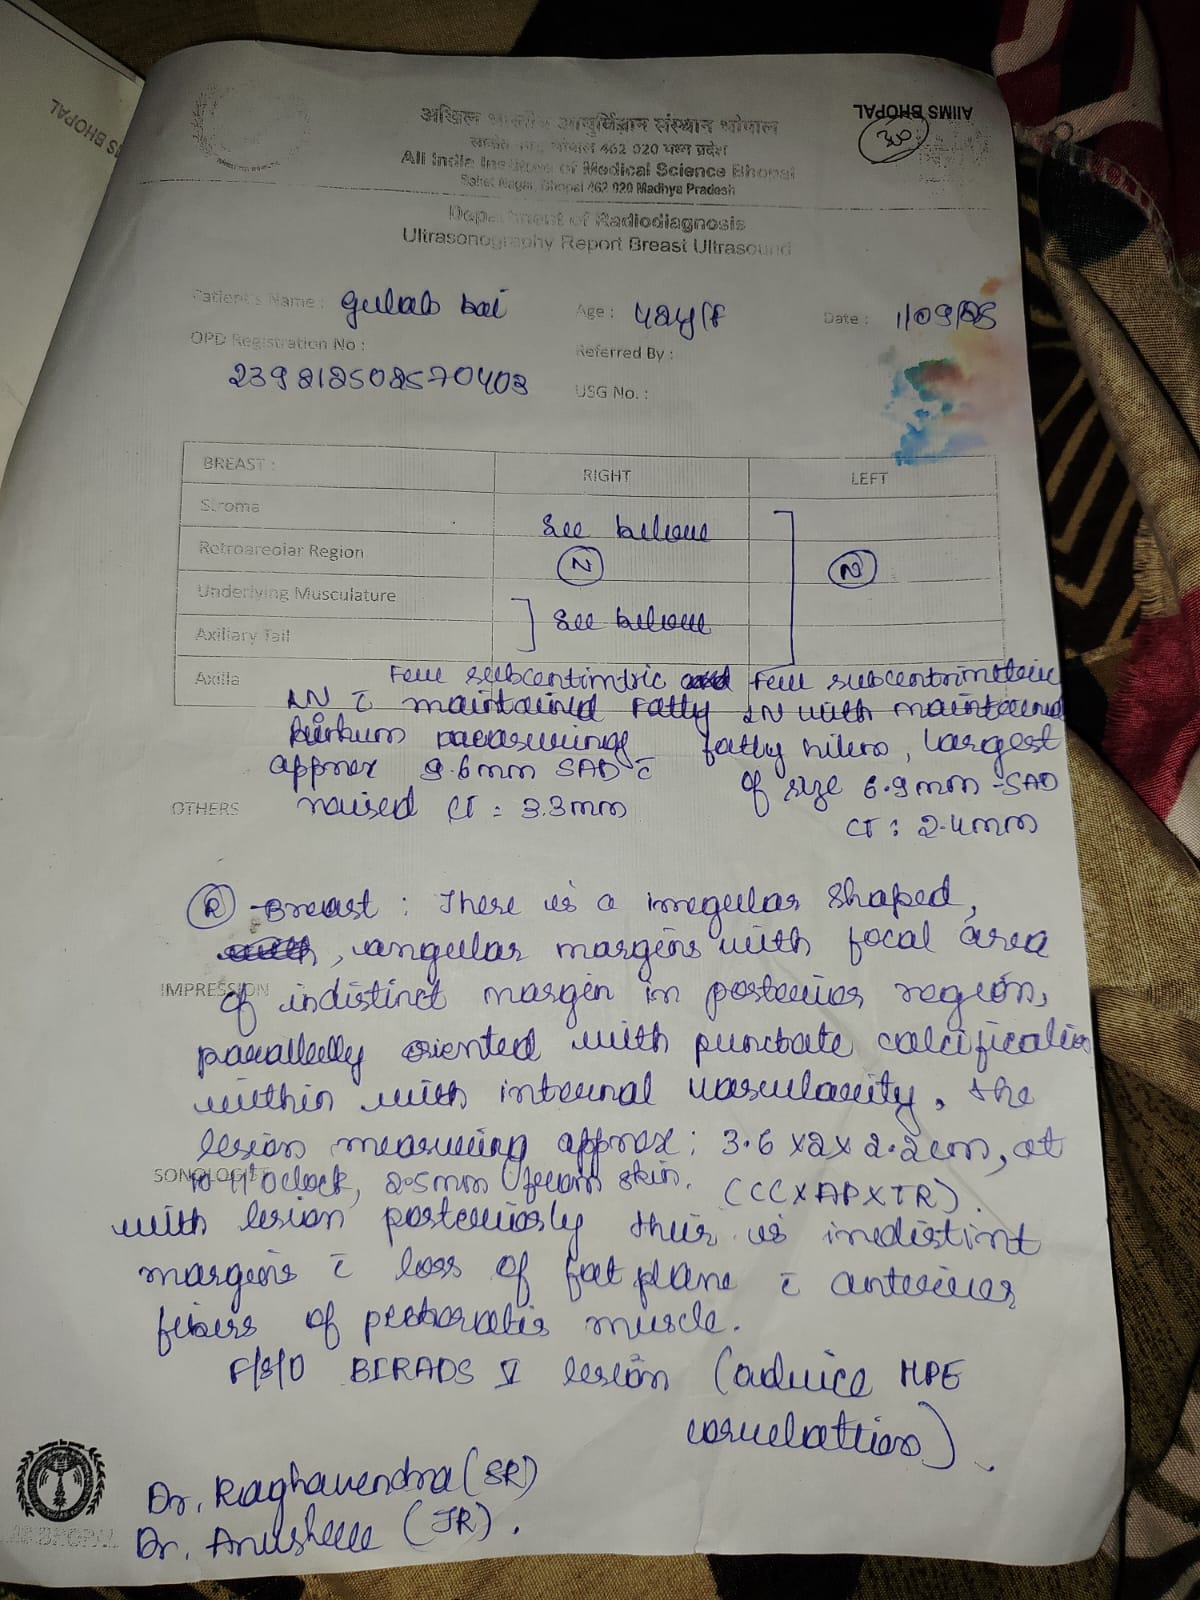 AIIMS BHOPAL
AIIMS BHOPAL
300
अखिल भारतीय आयुर्विज्ञान संस्थान भोपाल
साकेत नगर, भोपाल 462 020 मध्य प्रदेश
All India Institute of Medical Science Bhopal
Saket Nagar, Bhopal 462 020 Madhya Pradesh
Department of Radiodiagnosis
Ultrasonography Report Breast Ultrasound
Patient's Name : gulab bai Age : 42y/f Date : 1/09/25
OPD Registration No : Referred By :
239212502570403 USG No. :
BREAST : RIGHT LEFT
Stroma see below
Retroareolar Region N N
Underlying Musculature ] see below
Axiliary Tail
Axilla Few subcentimtric Few subcentrimetric
LN c̄ maintained Fatty LN with maintained
measuring fatty hilum, largest
approx 9.6mm SAD c̄ of size 6.9mm -SAD
OTHERS raised CT = 3.3mm CT : 2.4mm
(R) -Breast : There is a irregular shaped,
, angular margins with focal area
IMPRESSION of indistinct margin in posterior region,
parallelly oriented with punctate calcification
within with internal vascularity, the
lesion measuring approx: 3.6 x2x 2.2cm, at
SONOLOGIST 10-11 O'clock, 2.5mm from skin. (CCXAPXTR).
with lesion posteriorly their is indistint
margins c̄ loss of fat plane c̄ anterior
fibers of pectoralis muscle.
F/S/O BIRADS V lesion (advice HPE
correlation).
Dr. Raghavendra (SR)
Dr. (JR).
AIIMS BHOPAL